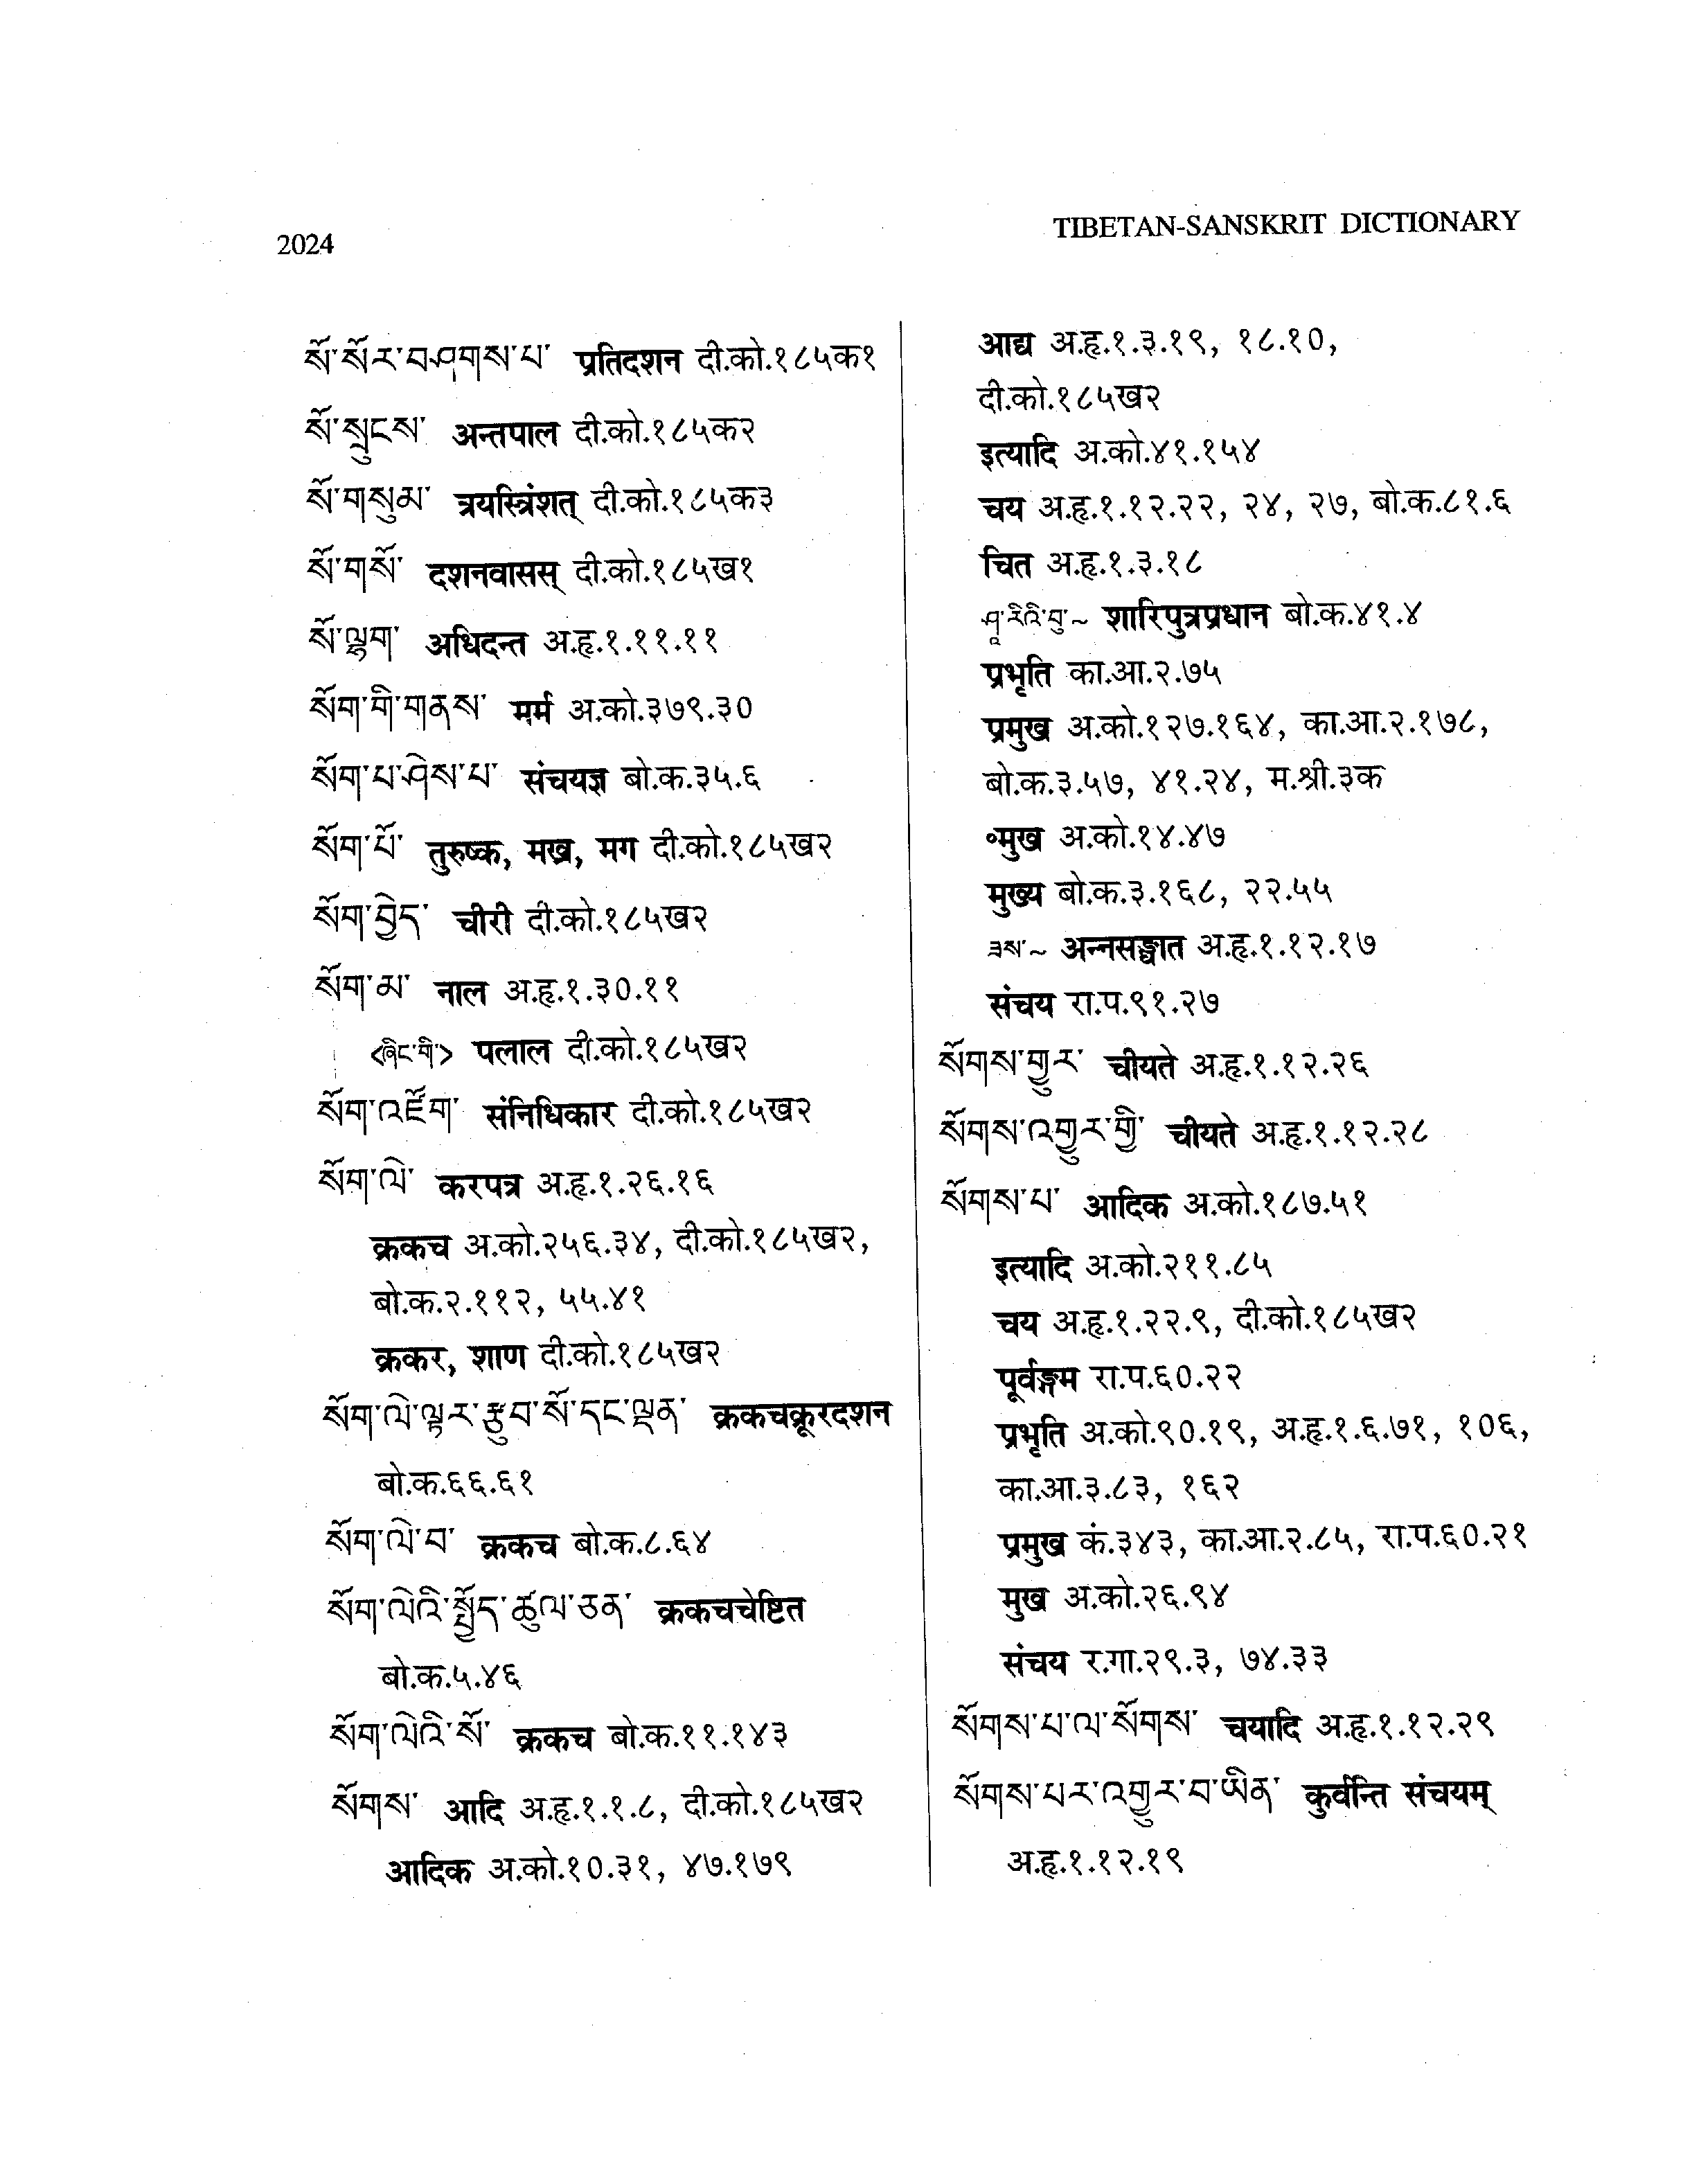 2024
TIBETAN-SANSKRIT DICTIONARY
སོ་སོར་བཤགས་པ་ प्रतिदशन दी.को.१८५क१
སོ་སྲུངས་ अन्तपाल दी.को.१८५क२
སོ་གསུམ་ त्रयस्त्रिंशत् दी.को.१८५क३
སོ་གསོ་ दशनवासस् दी.को.१८५ख१
སོ་ལྷག་ अधिदन्त अ.हृ.१.११.११
སོག་གི་གནས་ मर्म अ.को.३७९.३०
སོག་པ་ཤེས་པ་ संचयज्ञ बो.क.३५.६
སོག་པོ་ तुरुष्क, मख्र, मग दी.को.१८५ख२
སོག་བྱེད་ चीरी दी.को.१८५ख२
སོག་མ་ नाल अ.हृ.१.३०.११
<ཞིང་གི> पलाल दी.को.१८५ख२
སོག་འཇོག་ संनिधिकार दी.को.१८५ख२
སོག་ལེ་ करपत्र अ.हृ.१.२६.१६
क्रकच अ.को.२५६.३४, दी.को.१८५ख२,
बो.क.२.११२, ५५.४१
क्रकर, शाण दी.को.१८५ख२
སོག་ལེ་ལྟར་རྩུབ་སོ་དང་ལྡན་ क्रकचक्रूरदशन
बो.क.६६.६१
སོག་ལེ་བ་ क्रकच बो.क.८.६४
སོག་ལེའི་སྤྱོད་ཚུལ་ཅན་ क्रकचचेष्टित
बो.क.५.४६
སོག་ལེའི་སོ་ क्रकच बो.क.११.१४३
སོགས་ आदि अ.हृ.१.१.८, दी.को.१८५ख२
आदिक अ.को.१०.३१, ४७.१७९
आद्य अ.हृ.१.३.१९, १८.१०,
दी.को.१८५ख२
इत्यादि अ.को.४१.१५४
चय अ.हृ.१.१२.२२, २४, २७, बो.क.८१.६
चित अ.हृ.१.३.१८
ཤཱ་རིའི་བུ་~ शारिपुत्रप्रधान बो.क.४१.४
प्रभृति का.आ.२.७५
प्रमुख अ.को.१२७.१६४, का.आ.२.१७८,
बो.क.३.५७, ४१.२४, म.श्री.३क
॰मुख अ.को.१४.४७
मुख्य बो.क.३.१६८, २२.५५
ཟས་~ अन्नसङ्घात अ.हृ.१.१२.१७
संचय रा.प.९१.२७
སོགས་གྱུར་ चीयते अ.हृ.१.१२.२६
སོགས་འགྱུར་གྱི་ चीयते अ.हृ.१.१२.२८
སོགས་པ་ आदिक अ.को.१८७.५१
इत्यादि अ.को.२११.८५
चय अ.हृ.१.२२.९, दी.को.१८५ख२
पूर्वङ्गम रा.प.६०.२२
प्रभृति अ.को.९०.१९, अ.हृ.१.६.७१, १०६,
का.आ.३.८३, १६२
प्रमुख कं.३४३, का.आ.२.८५, रा.प.६०.२१
मुख अ.को.२६.९४
संचय र.गा.२९.३, ७४.३३
སོགས་པ་ལ་སོགས་ चयादि अ.हृ.१.१२.२९
སོགས་པར་འགྱུར་བ་ཡིན་ कुर्वन्ति संचयम्
अ.हृ.१.१२.१९